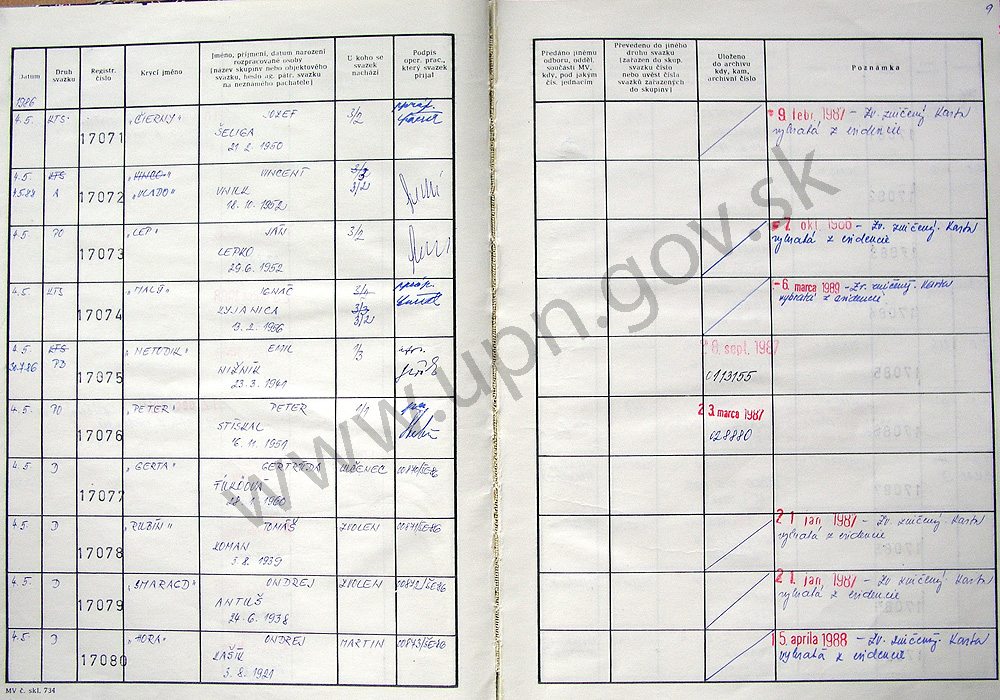 9
Datum
Druh svazku
Registr. číslo
Krycí jméno
Jméno, příjmení, datum narození
rozpracované osoby
(název skupiny nebo objektového
svazku, heslo ag. pátr. svazku
na neznámého pachatele)
U koho se
svazek
nachází
Podpis
oper. prac.,
který svazek
přijal
Předáno jinému
odboru, odděl.
součásti MV,
kdy, pod jakým
čís. jednacím
Převedeno do jiného
druhu svazku
(zařazen do skup.
svazku číslo
nebo uvést čísla
svazků zařazených
do skupiny)
Uloženo
do archivu
kdy, kam,
archivní číslo
Poznámka
1986
4.5. KTS 17071 „ČIERNY" JOZEF 3/2
ŠELIGA
21. 2. 1960
9. febr. 1987 – Zv. zničený. Karta
vybratá z evidencie
4.5. KTS 17072 VINCENT
A „VLADO" VNUK 3/2
18. 10. 1952
4.5. PO 17073 „LEP" JÁN 3/2
LEPKO
29. 6. 1952
7. okt. 1986 – Zv. zničený. Karta
vybratá z evidencie
4.5. KTS 17074 „MALÝ" IGNÁC
3/2
– 6. marca 1989 – Zv. zničený. Karta
vybratá z evidencie
4.5. KTS 17075 „METODIK" EMIL 1/3
PO NIŽNÍK
23. 3. 1941
8. sept. 1987
0113155
4.5. PO 17076 „PETER" PETER 1/1
STISKAL
16. 11. 1951
2 3. marca 1987
028880
4.5. D 17077 „GERTA" GERTRÚDA LUČENEC
1960
4.5. D 17078 „RUBÍN" TOMÁŠ ZVOLEN
ROMAN
5. 8. 1939
2 1. jan. 1987 – Zv. zničený. Karta
vybratá z evidencie
4.5. D 17079 „SMARAGD" ONDREJ ZVOLEN
ANTUŠ
24. 6. 1938
2 1. jan. 1987 – Zv. zničený. Karta
vybratá z evidencie
4.5. D 17080 „HORA" ONDREJ MARTIN
8. 1921
1 5. apríla 1988 – Zv. zničený. Karta
vybratá z evidencie
MV č. skl. 734
www.upn.gov.sk